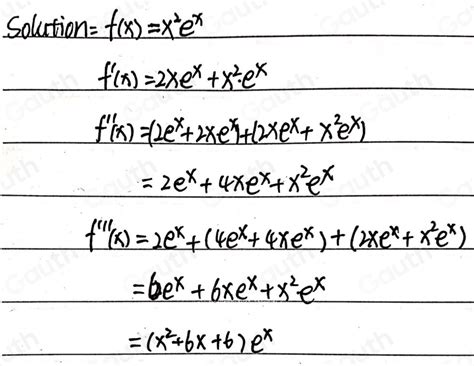 Solution= f(x)=x²eˣ
f'(x)=2xeˣ+x²·eˣ
f''(x)=(2eˣ+2xeˣ)+(2xeˣ+x²eˣ)
=2eˣ+4xeˣ+x²eˣ
f'''(x)=2eˣ+(4eˣ+4xeˣ)+(2xeˣ+x²eˣ)
=6eˣ+6xeˣ+x²·eˣ
=(x²+6x+6)eˣ